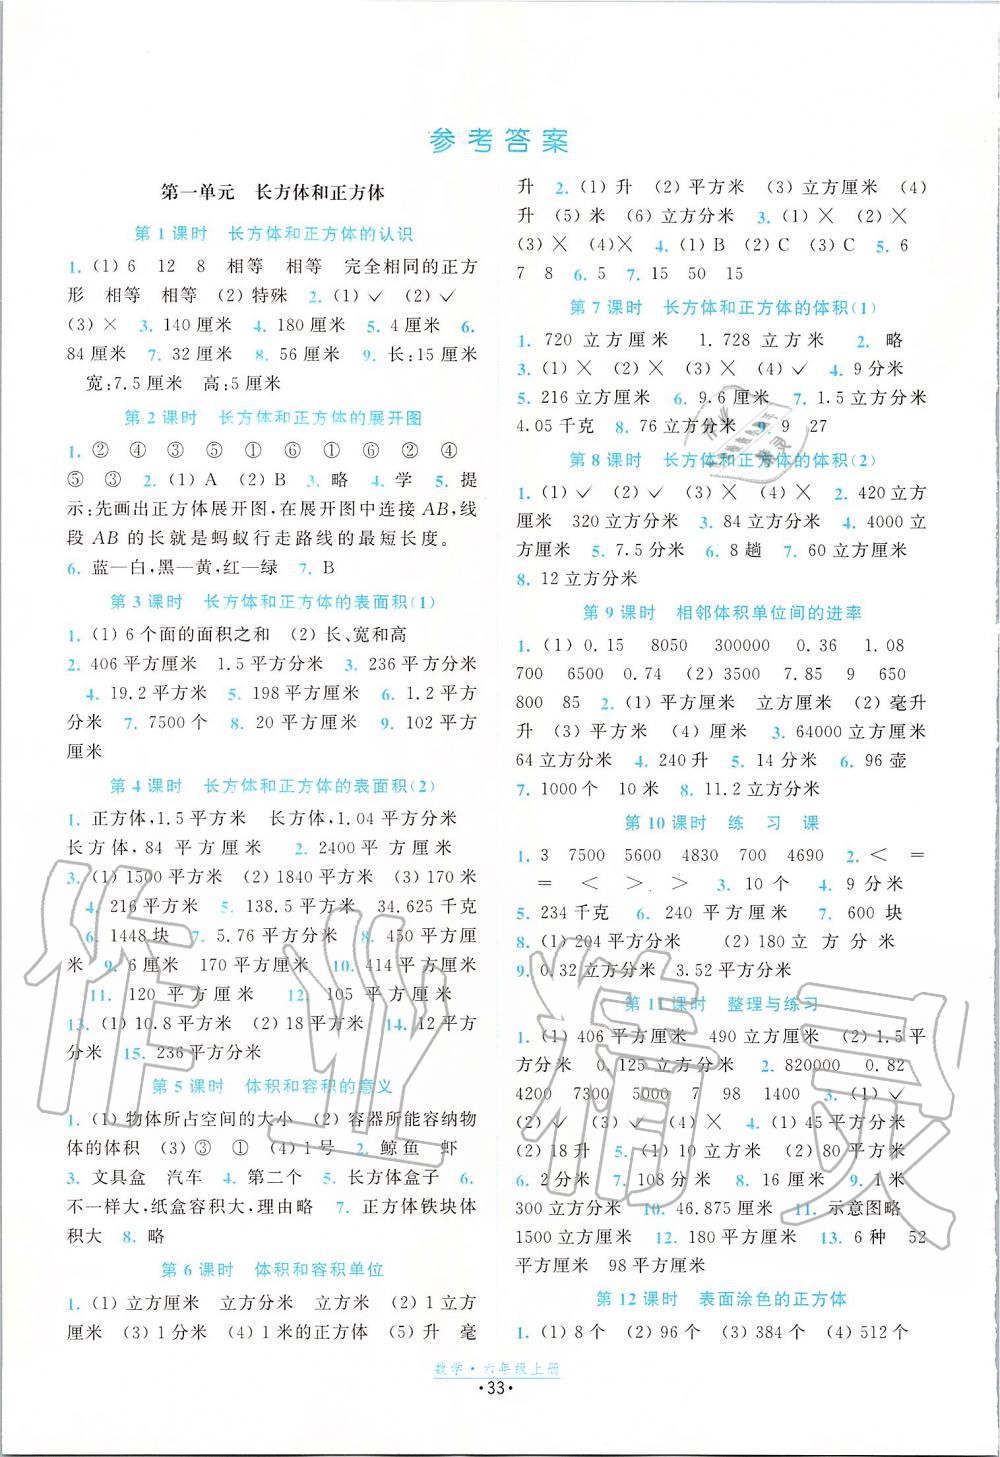 参考答案
第一单元 长方体和正方体
第1课时 长方体和正方体的认识
1. (1)6 12 8 相等 相等 完全相同的正方
形 相等 相等 (2)特殊 2. (1)✓ (2)✓
(3)× 3. 140厘米 4. 180厘米 5. 4厘米 6.
84厘米 7. 32厘米 8. 56厘米 9. 长:15厘米
宽:7.5厘米 高:5厘米
第2课时 长方体和正方体的展开图
1. ② ④ ③ ⑤ ① ⑥ ① ⑥ ② ④
⑤ ③ 2. (1)A (2)B 3. 略 4. 学 5. 提
示:先画出正方体展开图,在展开图中连接AB,线
段AB的长就是蚂蚁行走路线的最短长度。
6. 蓝—白,黑—黄,红—绿 7. B
第3课时 长方体和正方体的表面积(1)
1. (1)6个面的面积之和 (2)长、宽和高
2. 406平方厘米 1.5平方分米 3. 236平方分米
4. 19.2平方米 5. 198平方厘米 6. 1.2平方
分米 7. 7500个 8. 20平方厘米 9. 102平方
厘米
第4课时 长方体和正方体的表面积(2)
1. 正方体,1.5平方米 长方体,1.04平方分米
长方体,84平方厘米 2. 2400平方厘米
3. (1)1500平方米 (2)1840平方米 (3)170米
4. 216平方米 5. 138.5平方米 34.625千克
6. 1448块 7. 5.76平方分米 8. 450平方厘
米 9. 6厘米 170平方厘米 10. 414平方厘米
11. 120平方厘米 12. 105平方厘米
13. (1)10.8平方米 (2)18平方米 14. 12平方
分米 15. 236平方分米
第5课时 体积和容积的意义
1. (1)物体所占空间的大小 (2)容器所能容纳物
体的体积 (3)③ ① (4)1号 2. 鲸鱼 虾
3. 文具盒 汽车 4. 第二个 5. 长方体盒子 6.
不一样大,纸盒容积大,理由略 7. 正方体铁块体
积大 8. 略
第6课时 体积和容积单位
1. (1)立方厘米 立方分米 立方米 (2)1立方
厘米 (3)1立方分米 (4)1米的正方体 (5)升 毫
升 2. (1)升 (2)平方米 (3)立方厘米 (4)
升 (5)米 (6)立方分米 3. (1)× (2)×
(3)× (4)× 4. (1)B (2)C (3)C 5. 6
7 8 6. 5 7. 15 50 15
第7课时 长方体和正方体的体积(1)
1. 720立方厘米 1.728立方米 2. 略
3. (1)× (2)× (3)× (4)✓ 4. 9分米
5. 216立方分米 6. 9.6厘米 7. 1.5立方分米
4.05千克 8. 76立方分米 9. 9 27
第8课时 长方体和正方体的体积(2)
1. (1)✓ (2)✓ (3)× (4)× 2. 420立方
厘米 320立方分米 3. 84立方分米 4. 4000立
方厘米 5. 7.5分米 6. 8趟 7. 60立方厘米
8. 12立方分米
第9课时 相邻体积单位间的进率
1. (1)0.15 8050 300000 0.36 1.08
700 6500 0.74 (2)3500 7.85 9 650
800 85 2. (1)平方厘米 立方厘米 (2)毫升
升 (3)平方米 (4)厘米 3. 64000立方厘米
64立方分米 4. 240升 5. 14分米 6. 96壶
7. 1000个 10米 8. 11.2立方分米
第10课时 练习课
1. 3 7500 5600 4830 700 4690 2. < =
= < > > 3. 10个 4. 4000立方厘米
5. 234千克 6. 240平方厘米 7. 600块
8. (1)204平方分米 (2)180立方分米
9. 0.32立方分米 3.52平方分米
第11课时 整理与练习
1. (1)406平方厘米 490立方厘米 (2)1.5平
方分米 0.125立方分米 2. 820000 0.82
4200 7300 5000 7 98 1400 3. (1)✓
(2)✓ (3)✓ (4)× 4. (1)45平方分米
(2)18升 5. (1)10立方米 (2)80平方米
6. 2分米 7. 108分米 8. 16厘米 9. 1米
300立方分米 10. 46.875厘米 11. 示意图略
1500立方厘米 12. 180平方厘米 13. 6种 52
平方厘米 98平方厘米
第12课时 表面涂色的正方体
1. (1)8个 (2)96个 (3)384个 (4)512个
数学·六年级上册
·33·
作业精灵